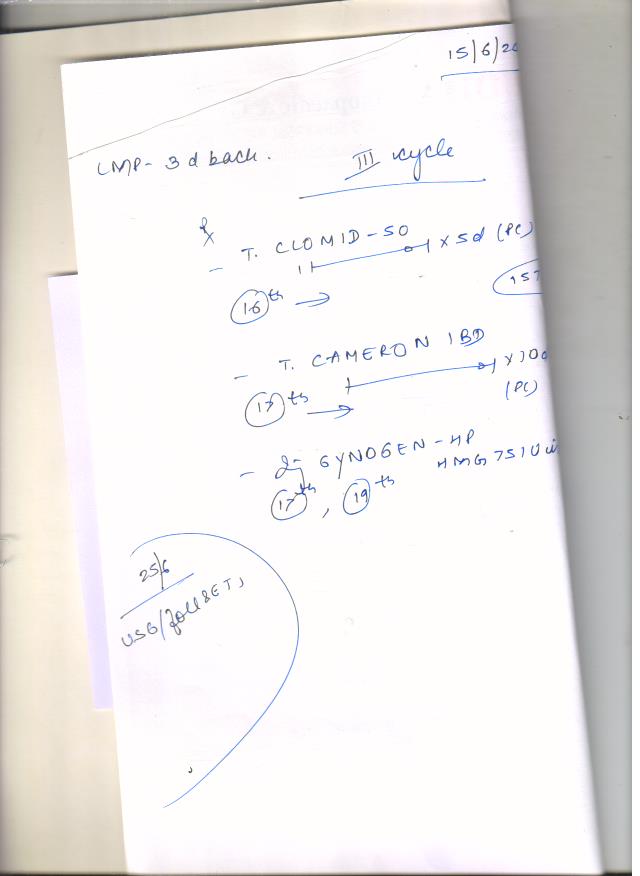 15/6/20
LMP- 3 d back.
III cycle
- T. CLOMID-50 x 5d (PC)
16th →
- T. CAMERON 1BD x 10d
17th → (PC)
- Inj GYNOGEN-HP
HMG 75 IU
17th, 19th
25/6
USG/foll & ET